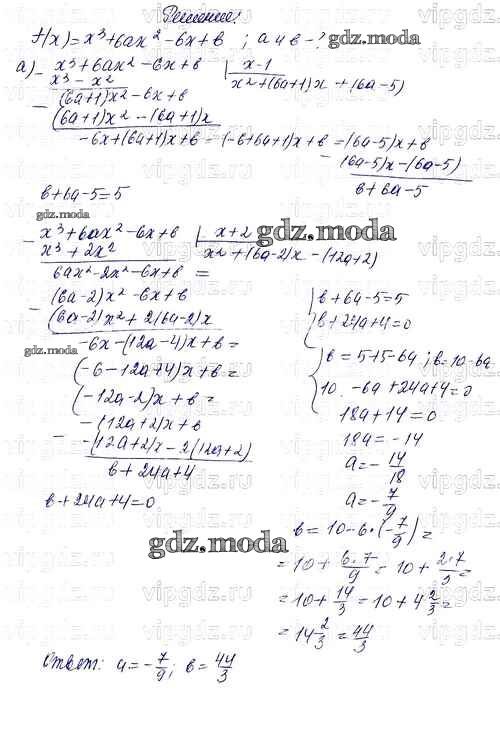 Решение:
f(x) = x³+6ax²-6x+в ; а и в -?
gdz.moda
а) - x³+6ax²-6x+в | x-1
x³ - x² x²+(6a+1)x+(6a-5)
(6a+1)x²-6x+в
- (6a+1)x²-(6a+1)x
-6x+(6a+1)x+в = (-6+6a+1)x+в = (6a-5)x+в
- (6a-5)x-(6a-5)
в+6a-5
в+6a-5=5
gdz.moda
- x³+6ax²-6x+в | x+2
x³+2x² x²+(6a-2)x-(12a+2)
gdz.moda
6ax²-2x²-6x+в =
(6a-2)x²-6x+в
- (6a-2)x²+2(6a-2)x
-6x-(12a-4)x+в =
gdz.moda
(-6-12a+4)x+в =
(-12a-2)x+в =
-(12a+2)x+в
- -(12a+2)x-2(12a+2)
в+24a+4
в+24a+4=0
{ в+6a-5=5
в+24a+4=0
{ в=5+5-6a ; в=10-6a
10-6a+24a+4=0
18a+14=0
18a=-14
a=-14/18
a=-7/9
gdz.moda
в=10-6·(-7/9)=
=10+6·7/9=10+2·7/3=
=10+14/3=10+4 2/3=
=14 2/3=44/3
Ответ: a=-7/9; в=44/3